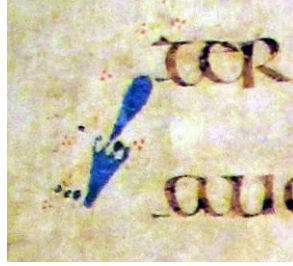 ter
aue